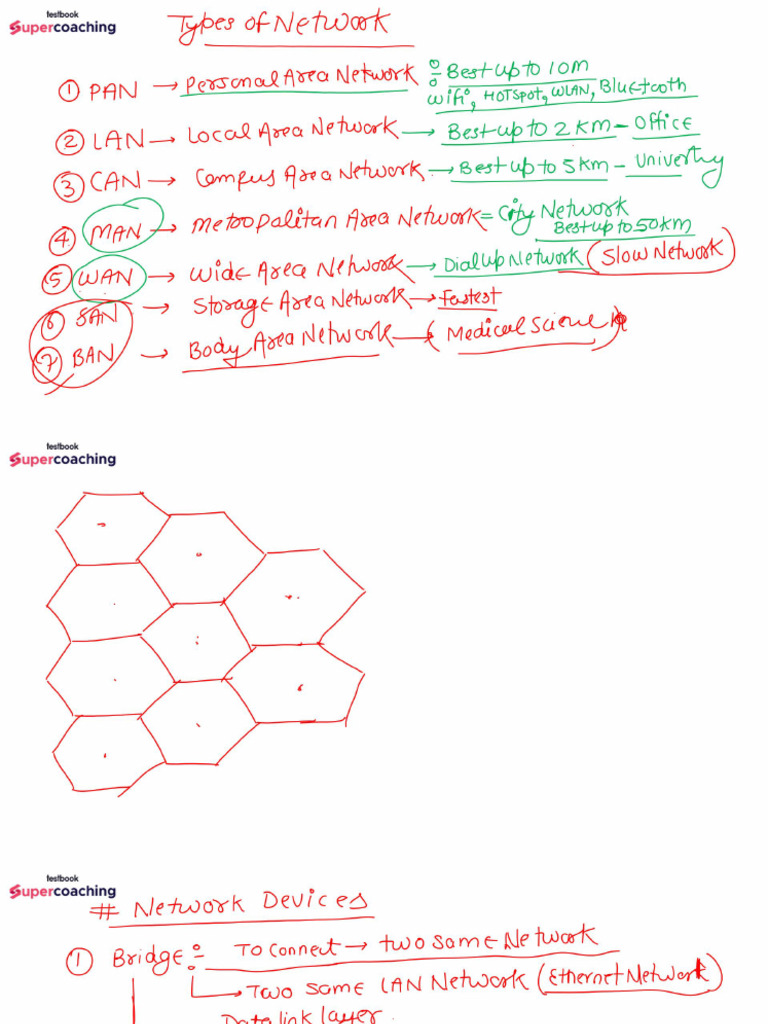 testbook
Supercoaching
Types of Network
① PAN → Personal Area Network : Best up to 10m
Wifi, HOTSpot, WLAN, Bluetooth
② LAN → Local Area Network → Best up to 2 km - Office
③ CAN → Campus Area Network → Best up to 5 km -
④ MAN → Metropolitan Area Network = City Network
Best up to 50 km
⑤ WAN → Wide Area Network → Dial up Network (Slow Network)
⑥ SAN → Storage Area Network → Fastest
⑦ BAN → Body Area Network → (Medical Science)
testbook
Supercoaching
testbook
Supercoaching
# Network Devices
① Bridge :- To connect → two same Network
→ Two same LAN Network (Ethernet Network)
Data link layer.